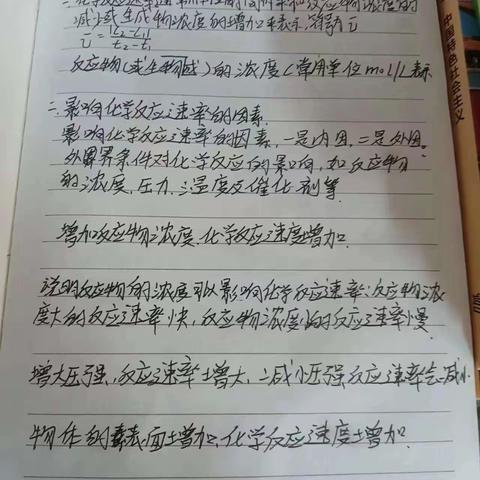 一化学反应速率通常用单位时间内和反应物浓度的
减少或生成物浓度的增加来表示,符号为 v
v̄ = |c₂-c₁| / t₂-t₁
反应物(或生物成)的浓度(常用单位 mol/L 表示
二.影响化学反应速率的因素.
影响化学反应速率的因素,一是内因,二是外因。
外界条件对化学反应的影响,如反应物
的浓度,压力,温度及催化剂等.
增加反应物浓度.化学反应速度增加.
说明反应物的浓度可以影响化学反应速率:反应物浓
度大的反应速率快,反应物浓度小的反应速率慢.
增大压强,反应速率增大,减小压强反应速率会减小.
物体的表面增加,化学反应速度增加.
中国特色社会主义